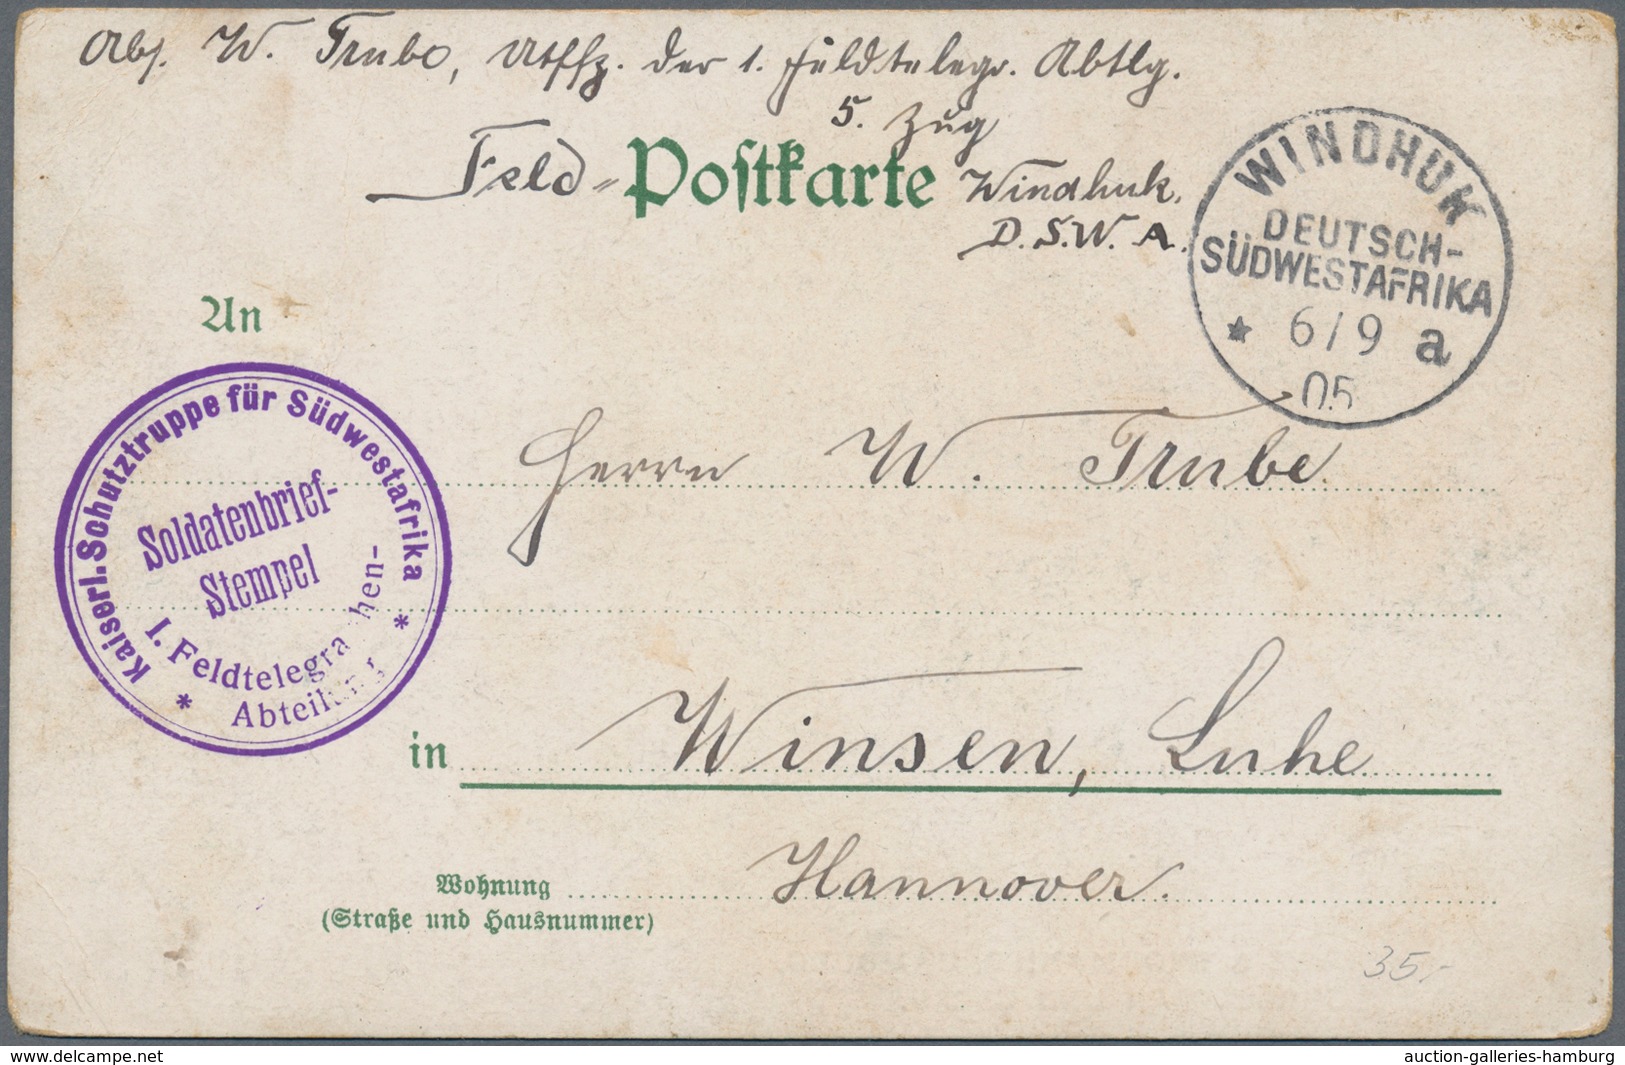 Abs. W. Trube, Utffz. der 1. Feldtelegr. Abtlg.
5. Zug
Feld- Postkarte Windhuk.
D.S.W.A.
WINDHUK
DEUTSCH-
SÜDWESTAFRIKA
* 6/9 a
05
An
Kaiserl. Schutztruppe für Südwestafrika
Soldatenbrief-
Stempel
* I. Feldtelegra hen- *
Abteilung
Herrn W. Trube
in Winsen, Luhe
Wohnung Hannover.
(Straße und Hausnummer)
35,-
www.delcampe.net
auction-galleries-hamburg